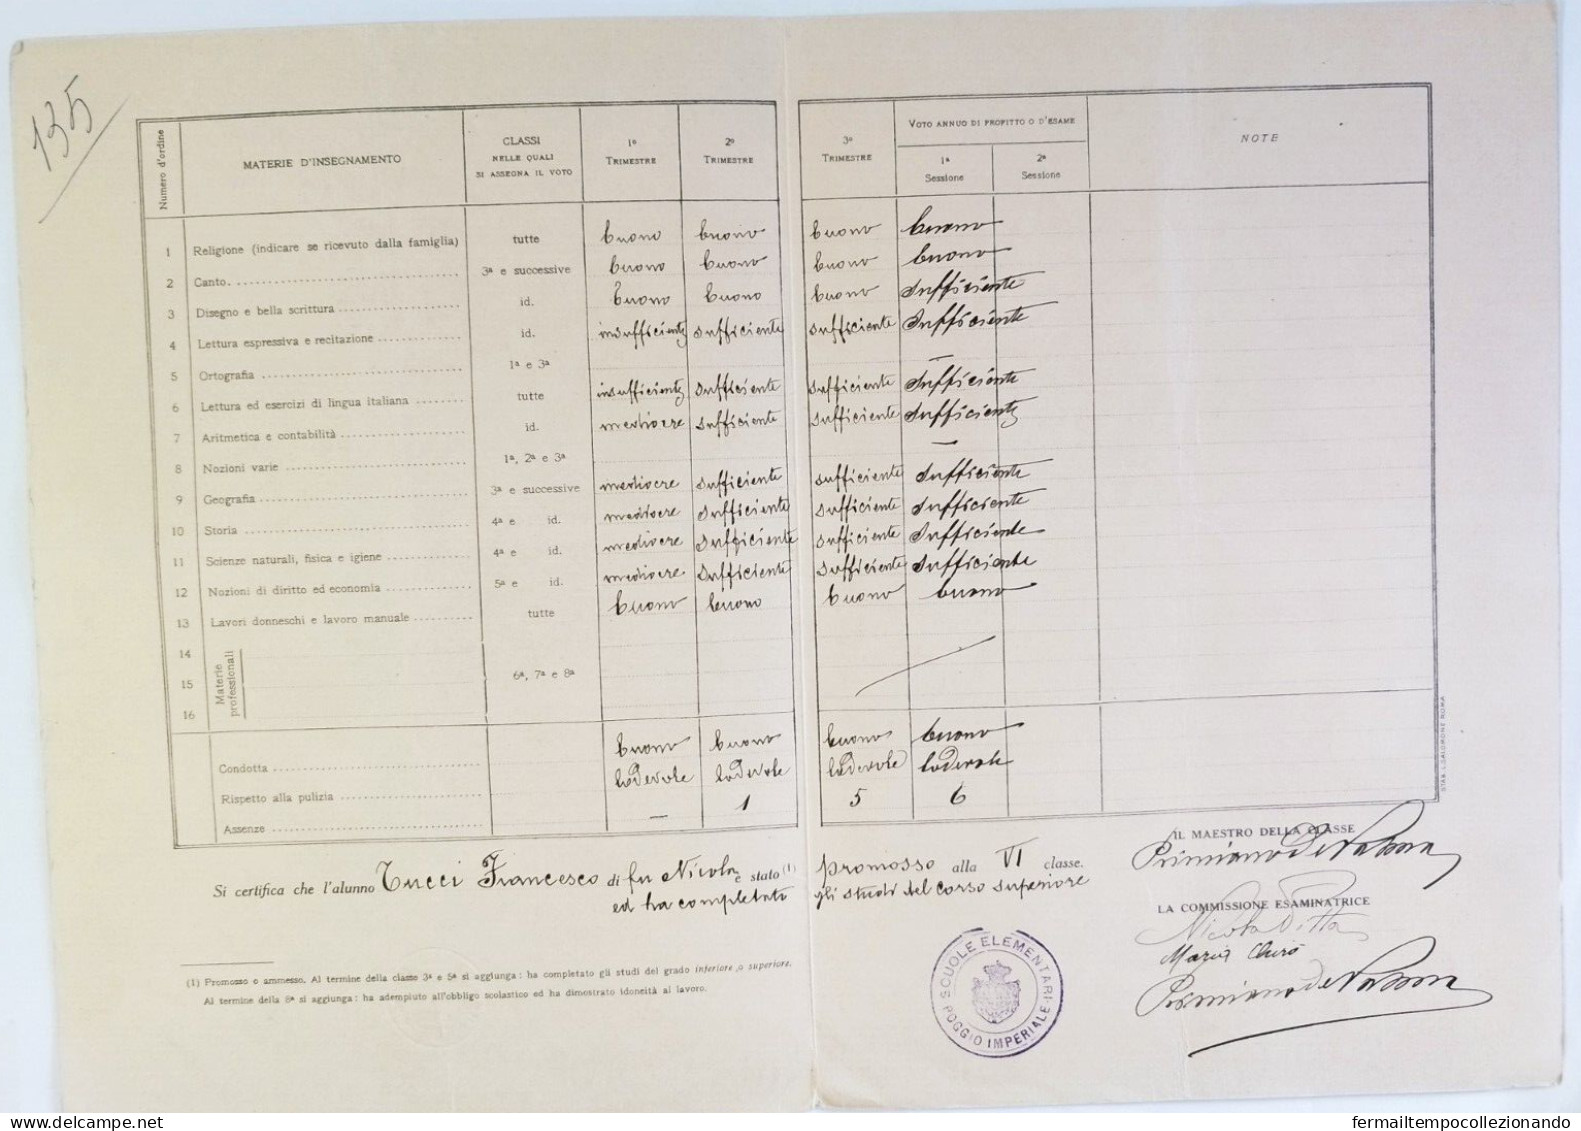 135
Numero d'ordine | MATERIE D'INSEGNAMENTO | CLASSI NELLE QUALI SI ASSEGNA IL VOTO | 1º TRIMESTRE | 2º TRIMESTRE | 3º TRIMESTRE | VOTO ANNUO DI PROFITTO O D'ESAME | NOTE
1ª Sessione | 2ª Sessione
1 Religione (indicare se ricevuto dalla famiglia) tutte buono buono buono buono
2 Canto 3ª e successive buono buono buono buono
3 Disegno e bella scrittura id. buono buono buono sufficiente
4 Lettura espressiva e recitazione id. insufficiente sufficiente sufficiente sufficiente
5 Ortografia 1ª e 3ª —
6 Lettura ed esercizi di lingua italiana tutte insufficiente sufficiente sufficiente sufficiente
7 Aritmetica e contabilità id. mediocre sufficiente sufficiente sufficiente
8 Nozioni varie 1ª, 2ª e 3ª —
9 Geografia 3ª e successive mediocre sufficiente sufficiente sufficiente
10 Storia 4ª e id. mediocre sufficiente sufficiente sufficiente
11 Scienze naturali, fisica e igiene 4ª e id. mediocre sufficiente sufficiente sufficiente
12 Nozioni di diritto ed economia 5ª e id. mediocre sufficiente sufficiente sufficiente
13 Lavori donneschi e lavoro manuale tutte buono buono buono buono
14
15 Materie professionali 6ª, 7ª e 8ª
16
Condotta buono buono buono buono
Rispetto alla pulizia lodevole lodevole lodevole lodevole
Assenze — 1 5 6
STAB. L. SALOMONE ROMA
Si certifica che l'alunno Tucci Francesco di fu Nicola è stato (1) promosso alla VI classe.
ed ha completato gli studi del corso superiore
(1) Promosso o ammesso. Al termine della classe 3ª e 5ª si aggiunga: ha completato gli studi del grado inferiore, o superiore.
Al termine della 8ª si aggiunga: ha adempiuto all'obbligo scolastico ed ha dimostrato idoneità al lavoro.
SCUOLE ELEMENTARI
POGGIO IMPERIALE
IL MAESTRO DELLA CLASSE
Primiano
LA COMMISSIONE ESAMINATRICE
Nicola
Maria
Primiano
fermailtempocollezionando